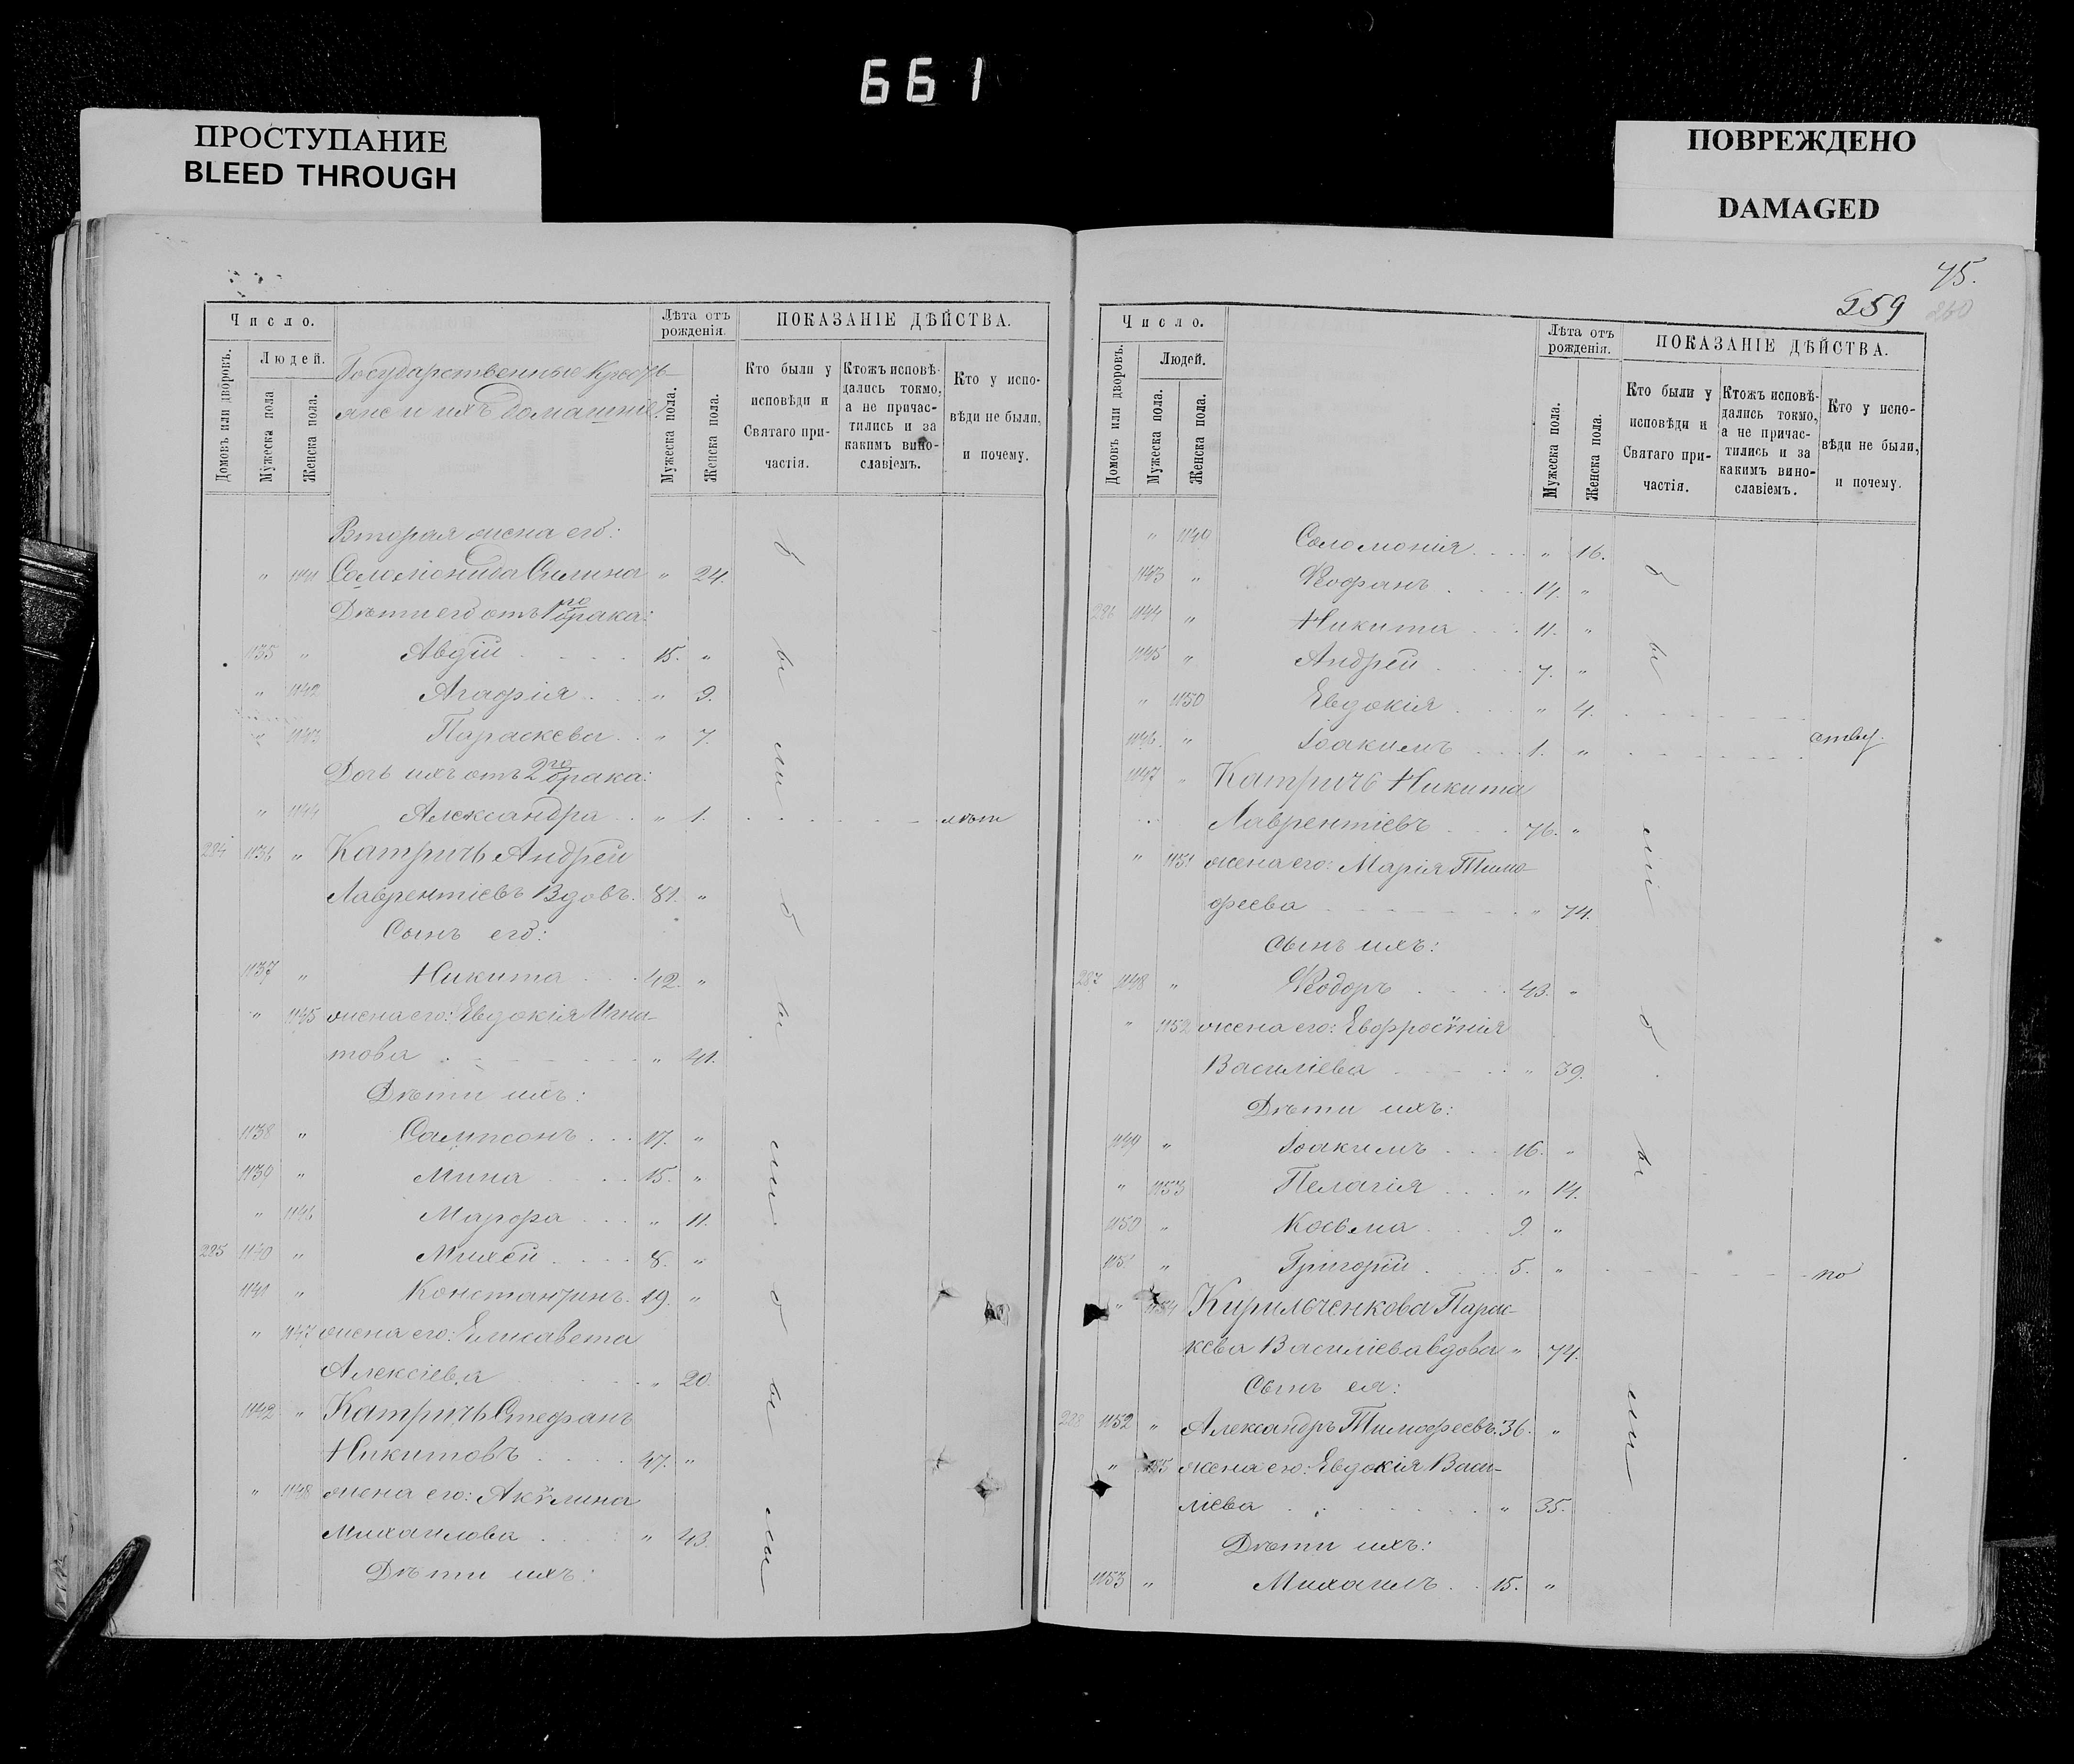 661
ПРОСТУПАНИЕ
BLEED THROUGH
ПОВРЕЖДЕНО
DAMAGED
Число.
Людей.
Домовъ или дворовъ.
Мужеска пола
Женска пола.
Государственные Кресть-
яне и ихъ домашніе.
Лѣта отъ
рожденія.
Мужеска пола.
Женска пола.
ПОКАЗАНІЕ ДѢЙСТВА.
Кто были у
исповѣди и
Святаго при-
частія.
Ктожъ исповѣ-
дались токмо,
а не причас-
тились и за
какимъ вино-
славіемъ.
Кто у испо-
вѣди не были,
и почему.
Вторая жена его:
" 1141 Соломонида " 24.
Дѣти его отъ 1го брака:
1135 " Авдій 15. "
" 1142 Агафія " 9.
" 1143 Параскева " 7.
Дочь ихъ отъ 2го брака:
" 1144 Александра " 1.
284 1136 " Катричъ Андрей
Лаврентіевъ Вдовъ. 81. "
Сынъ его:
1137 " Никита 42. "
" 1145 жена его: Евдокія Игна-
това " 41.
Дѣти ихъ:
1138 " Сампсонъ 17. "
1139 " Мина 15. "
" 1146 Марфа " 11.
285 1140 " Михей 8. "
1141 " Константинъ. 19. "
" 1147 жена его: Елисавета
Алексіева " 20.
1142 " Катричъ Стефанъ
Никитовъ 47. "
" 1148 жена его: Акѵлина
Михаилова " 43.
Дѣти ихъ:
были были были
75.
259
260
Число.
Людей.
Домовъ или дворовъ.
Мужеска пола.
Женска пола.
Лѣта отъ
рожденія.
Мужеска пола.
Женска пола.
ПОКАЗАНІЕ ДѢЙСТВА.
Кто были у
исповѣди и
Святаго при-
частія.
Ктожъ исповѣ-
дались токмо,
а не причас-
тились и за
какимъ вино-
славіемъ.
Кто у испо-
вѣди не были,
и почему.
" 1149 Соломонія " 16.
1143 " Ѳеофанъ 14. "
286 1144 " Никита 11. "
1145 " Андрей 7. "
" 1150 Евдокія " 4.
1146 " Іоакимъ 1. "
1147 " Катричъ Никита
Лаврентіевъ 76. "
" 1151 жена его: Марія Тимо-
феева " 74.
Сынъ ихъ:
287 1148 " Ѳеодоръ 43. "
" 1152 жена его: Евфросѵнія
Василіева " 39.
Дѣти ихъ:
1149 " Іоакимъ 16. "
" 1153 Пелагія " 14.
1150 " Косьма 9. "
1151 " Григорій 5. "
" 1154 Кирильченкова Парас-
кева Василіева вдова " 74.
Сынъ ея:
288 1152 " Александръ Тимофеевъ. 36. "
" 1155 жена его: Евдокія Васи-
ліева " 35.
Дѣти ихъ:
1153 " Михаилъ 15. "
были были